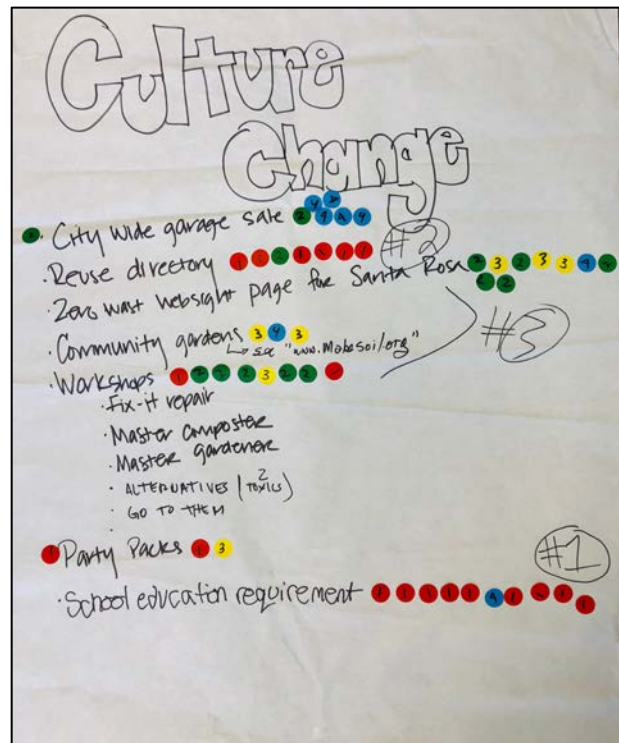 Culture
Change
· City wide garage sale 2 4 4 4 4
· Reuse directory 1 1 2 1 1 1 1 #2
· Zero wast websight page for Santa Rosa 2 3 2 3 3 4 2 2
· Community gardens 3 4 3 #3
↳ see "www.Makesoil.org"
· Workshops 1 2 2 2 3 2 2
· Fix-it repair
· Master composter
· Master gardener
· ALTERNATIVES (TOXICS) 2
· GO TO THEM
·
Party Packs 1 3
#1
· School education requirement 1 1 1 1 1 4 1 1 1 1